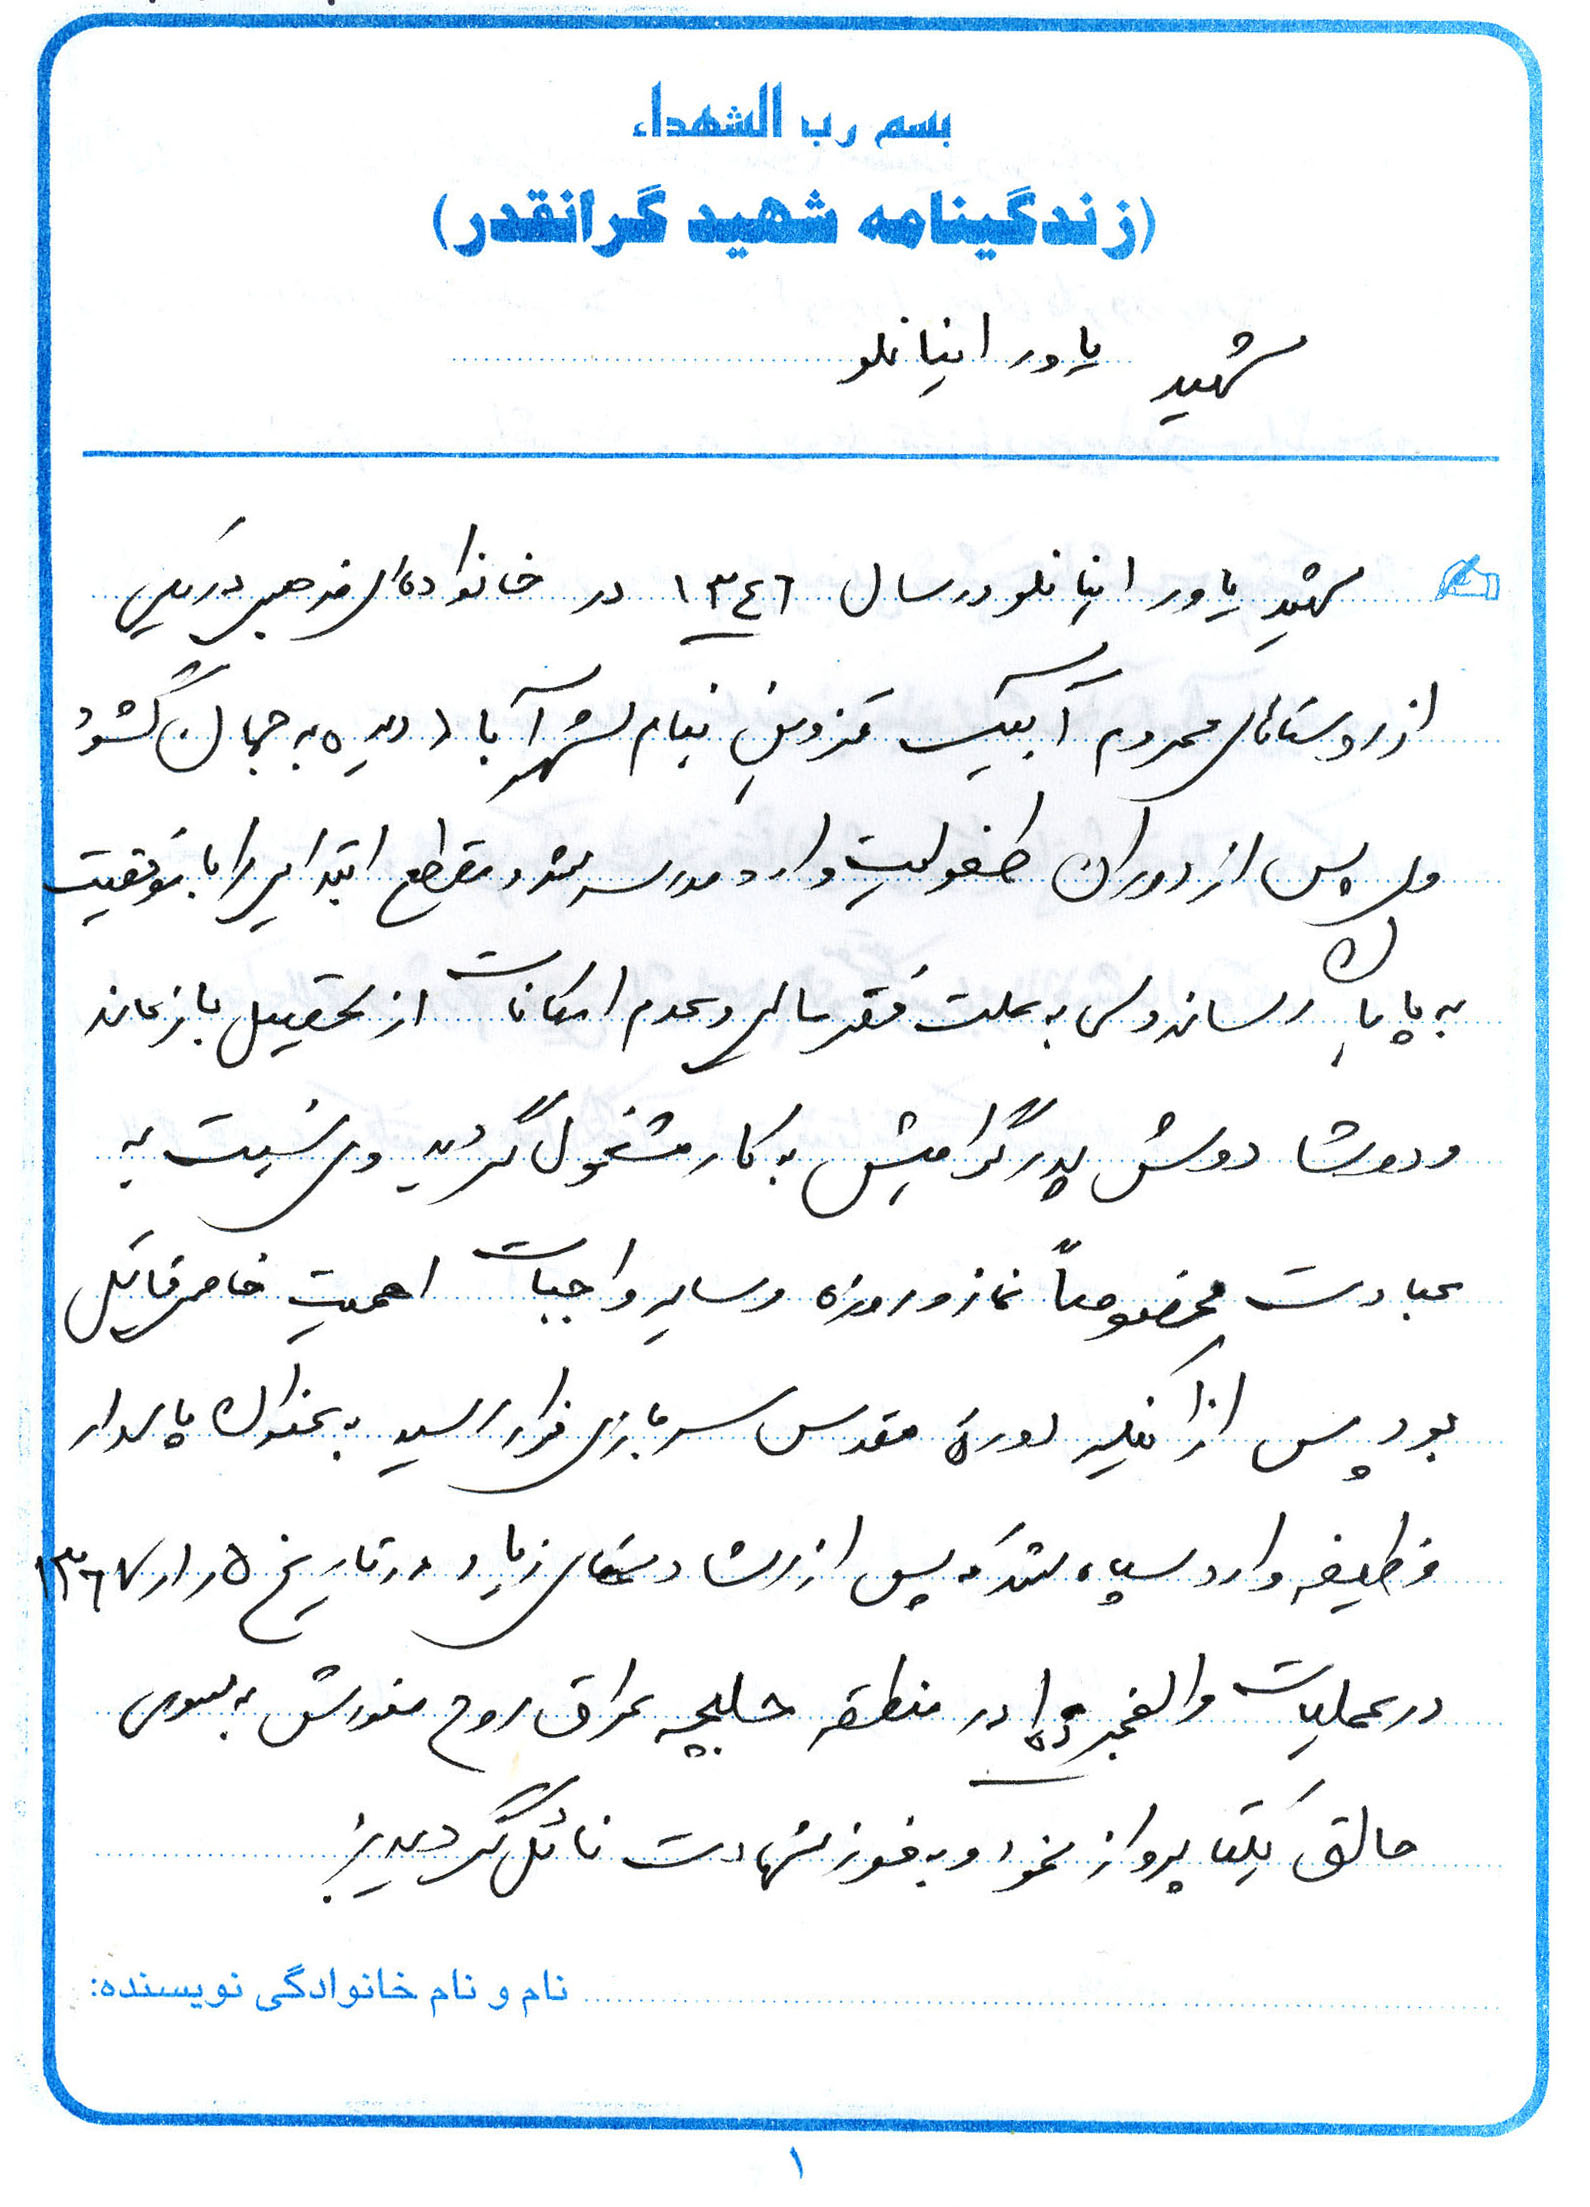 بسم رب الشهداء
(زندگینامه شهید گرانقدر)
شهید یاور اینانلو
شهید یاور اینانلو در سال ١٣٤٦ در خانواده‌ای مذهبی در یکی
از روستاهای محروم آبیک قزوین بنام شهرآباد دیده به جهان گشود
وی پس از دوران طفولیت وارد مدرسه شد و مقطع ابتدایی را با موفقیت
به پایان رساند وی به علت فقر مالی و عدم امکانات از تحصیل بازماند
و دوشا دوش پدر گرامیش به کار مشغول گردید وی نسبت به
عبادت مخصوصاً نماز و روزه و سایر واجبات اهمیت خاصی قائل
بود پس از اینکه دورهٔ مقدس سربازی فرا رسید به عنوان پاسدار
وظیفه وارد سپاه شد که پس از رشادتهای زیاد در تاریخ ١٣٦٧/١/٥
در عملیات والفجر ١٠ در منطقه حلبچه عراق روح منورش به سوی
خالق یکتا پرواز نمود و به فوز شهادت نائل گردید
نام و نام خانوادگی نویسنده:
١